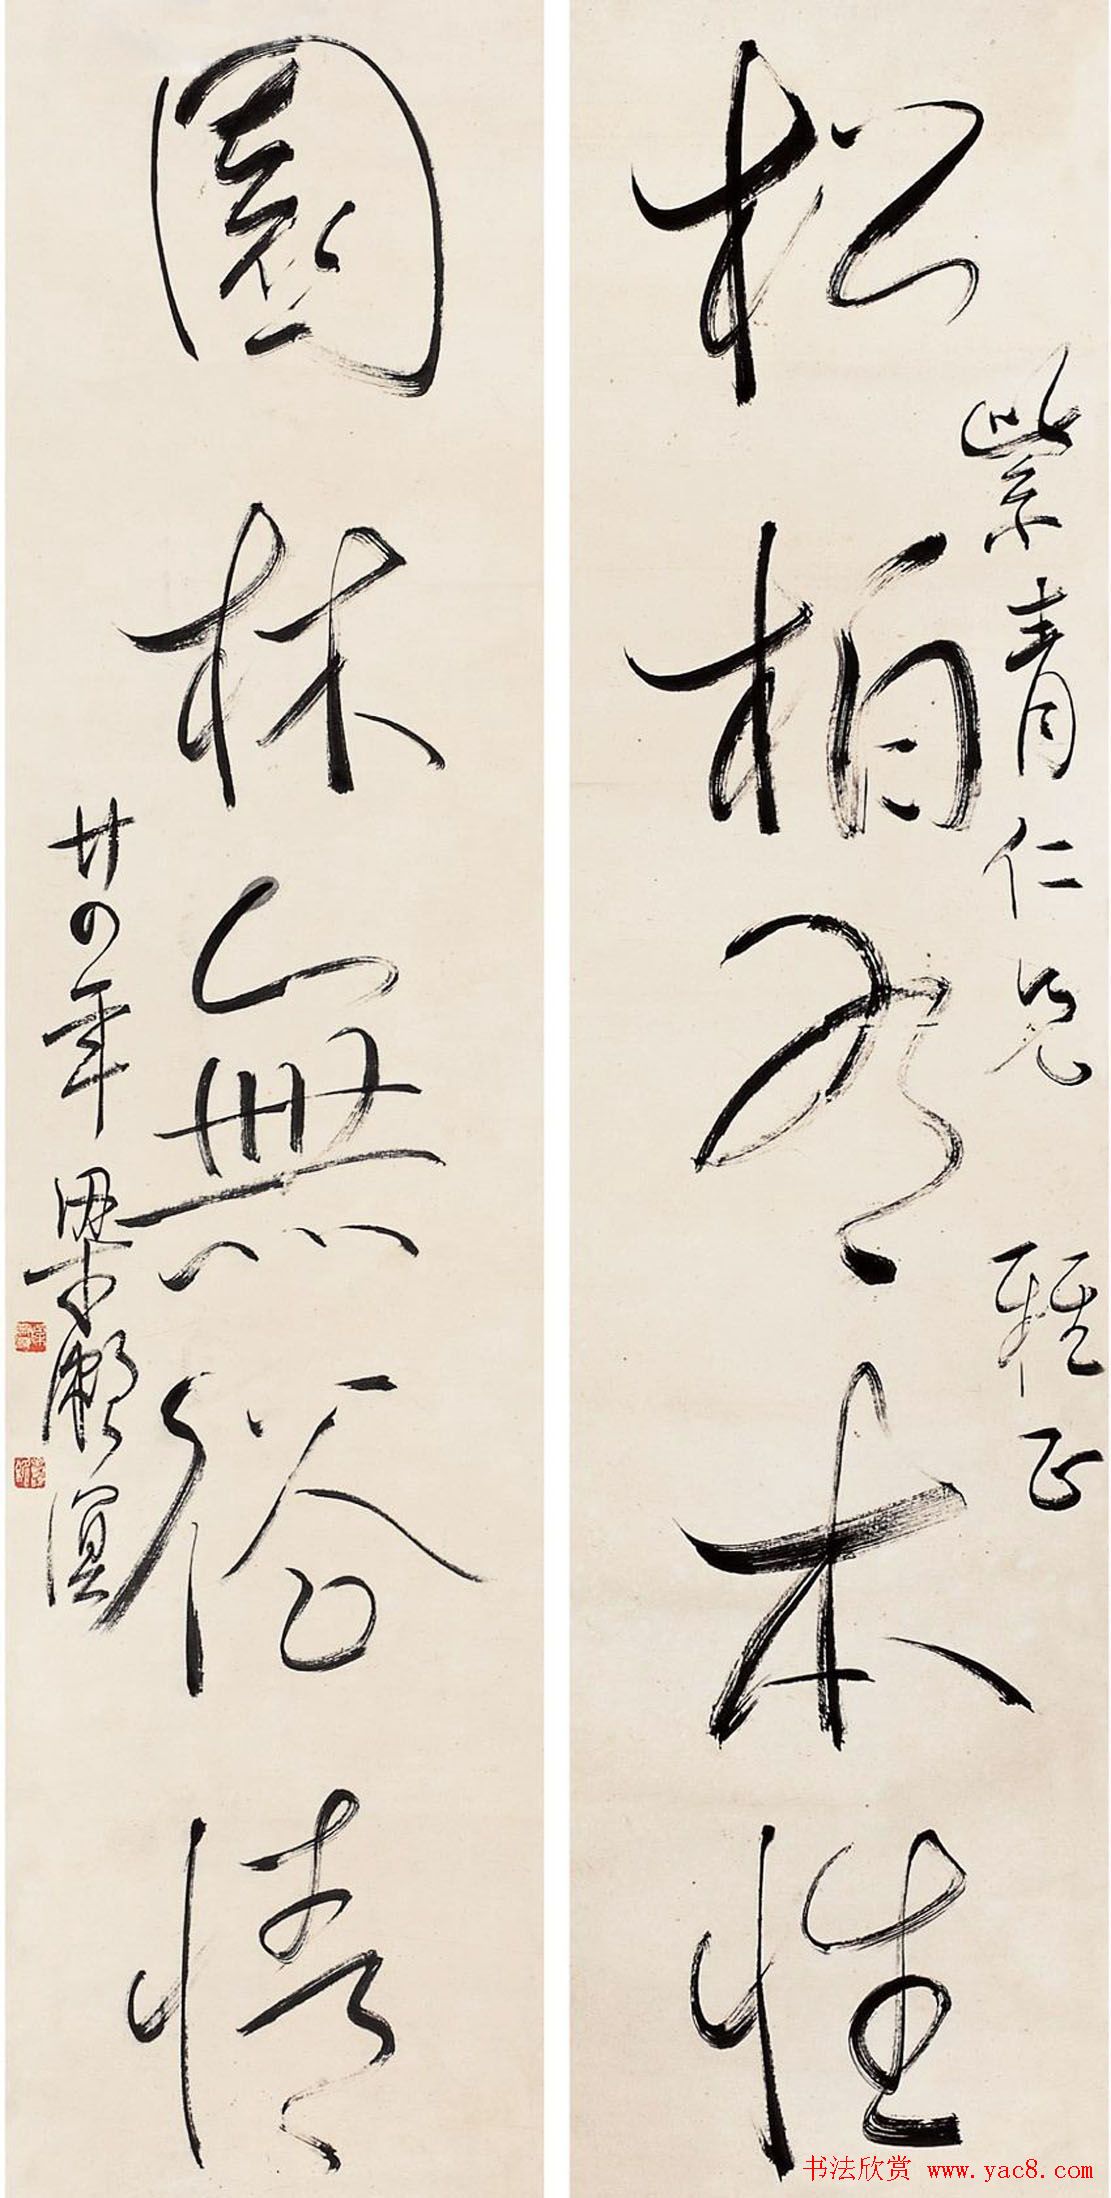 松柏有本性
紫青仁兄 雅正
園林無俗情
廿四年 梁漱溟
书法欣赏 www.yac8.com